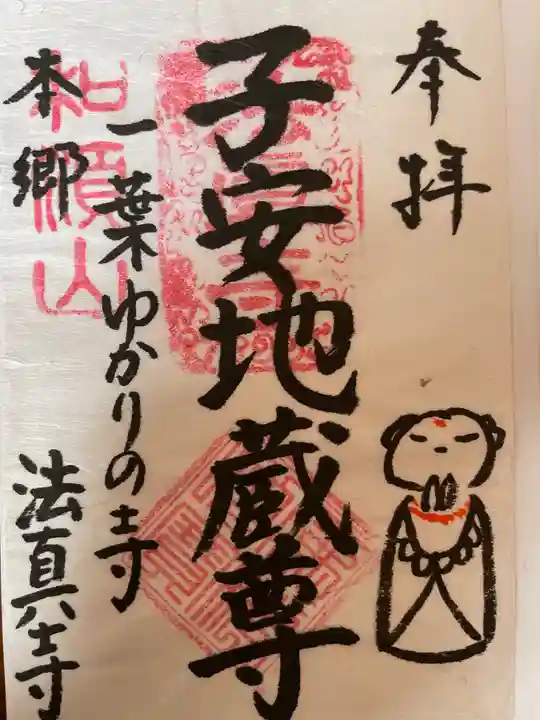 奉拝
子安地蔵尊
一葉ゆかりの寺
本郷 法真寺
和順山